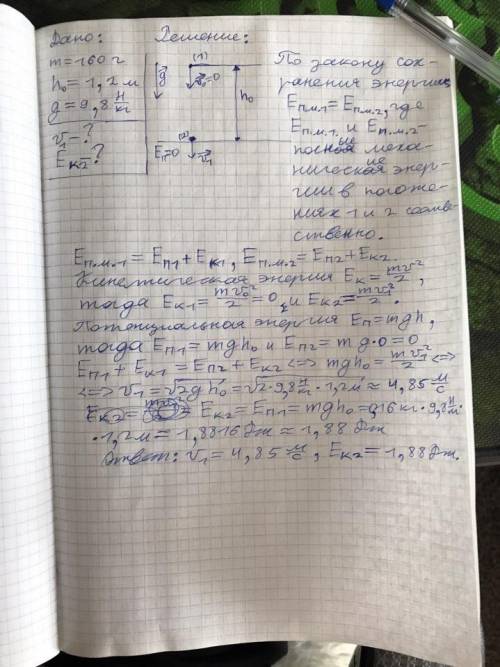 Дано:
m = 160 г
h₀ = 1,2 м
g = 9,8 Н/кг
v₁ - ?
Eк2 - ?
Решение:
(1)
g
v₀=0
h₀
(2)
Eп=0
v₁
По закону сох-
ранения энергии
Eп.м.1 = Eп.м.2, где
Eп.м.1. и Eп.м.2 -
полная меха-
ническая энер-
гии в положе-
ниях 1 и 2 соотве-
ственно.
Eп.м.1 = Eп1 + Eк1, Eп.м.2 = Eп2 + Eк2.
Кинетическая энергия Eк = mv²/2,
тогда Eк1 = mv₀²/2 = 0, и Eк2 = mv₁²/2.
Потенциальная энергия Eп = mgh,
тогда Eп1 = mgh₀ и Eп2 = mg·0 = 0
Eп1 + Eк1 = Eп2 + Eк2 <=> mgh₀ = mv₁²/2 <=>
<=> v₁ = √2gh₀ = √2·9,8 Н/кг · 1,2м ≈ 4,85 м/с
Eк2 = Eк2 = Eп1 = mgh₀ = 0,16 кг · 9,8 Н/кг ·
· 1,2 м = 1,8816 Дж ≈ 1,88 Дж
Ответ: v₁ = 4,85 м/с, Eк2 = 1,88 Дж.